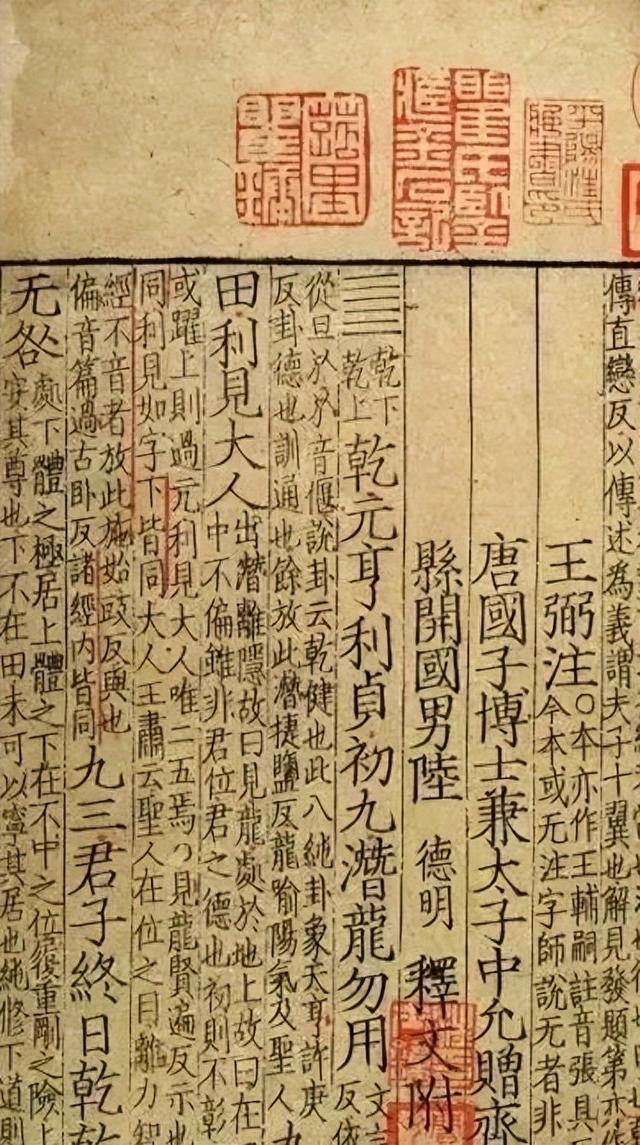 傳直戀反以傳述為義謂夫子十翼也解見發題第亦作
王弼注○本亦作王輔嗣註音張具
今本或无注字師說无者非
唐國子博士兼太子中允贈齊
縣開國男陸 德明 釋文附
䷀ 乾下
乾上 乾元亨利貞初九潛龍勿用 文言
反依
從旦㫃㫃音偃說卦云乾健也此八純卦象天亨許庚
反卦德也訓通也餘放此潛捷鹽反龍喻陽氣及聖人 九
田利見大人 出潛離隱故曰見龍處於地上故曰在
中不偏雖非君位君之德也初則不彰
或躍上則過元利見大人唯二五焉○見龍賢遍反示也
同利見如字下皆同大人王肅云聖人在位之目離力智
經不音者放此施始豉反與也
偏音篇過古卧反諸經內皆同 九三君子終日乾乾
无咎 處下體之極居上體之下在不中之位履重剛之險上
安其尊也下不在田未可以寧其居也純修下道則